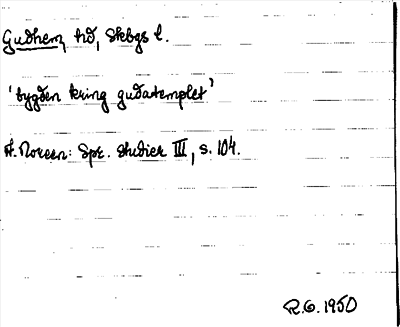 Gudhem, hd, Skbgs l.
'bygden kring gudatemplet'
A. Noreen: Spr. studier III, s. 104.
R.G. 1950